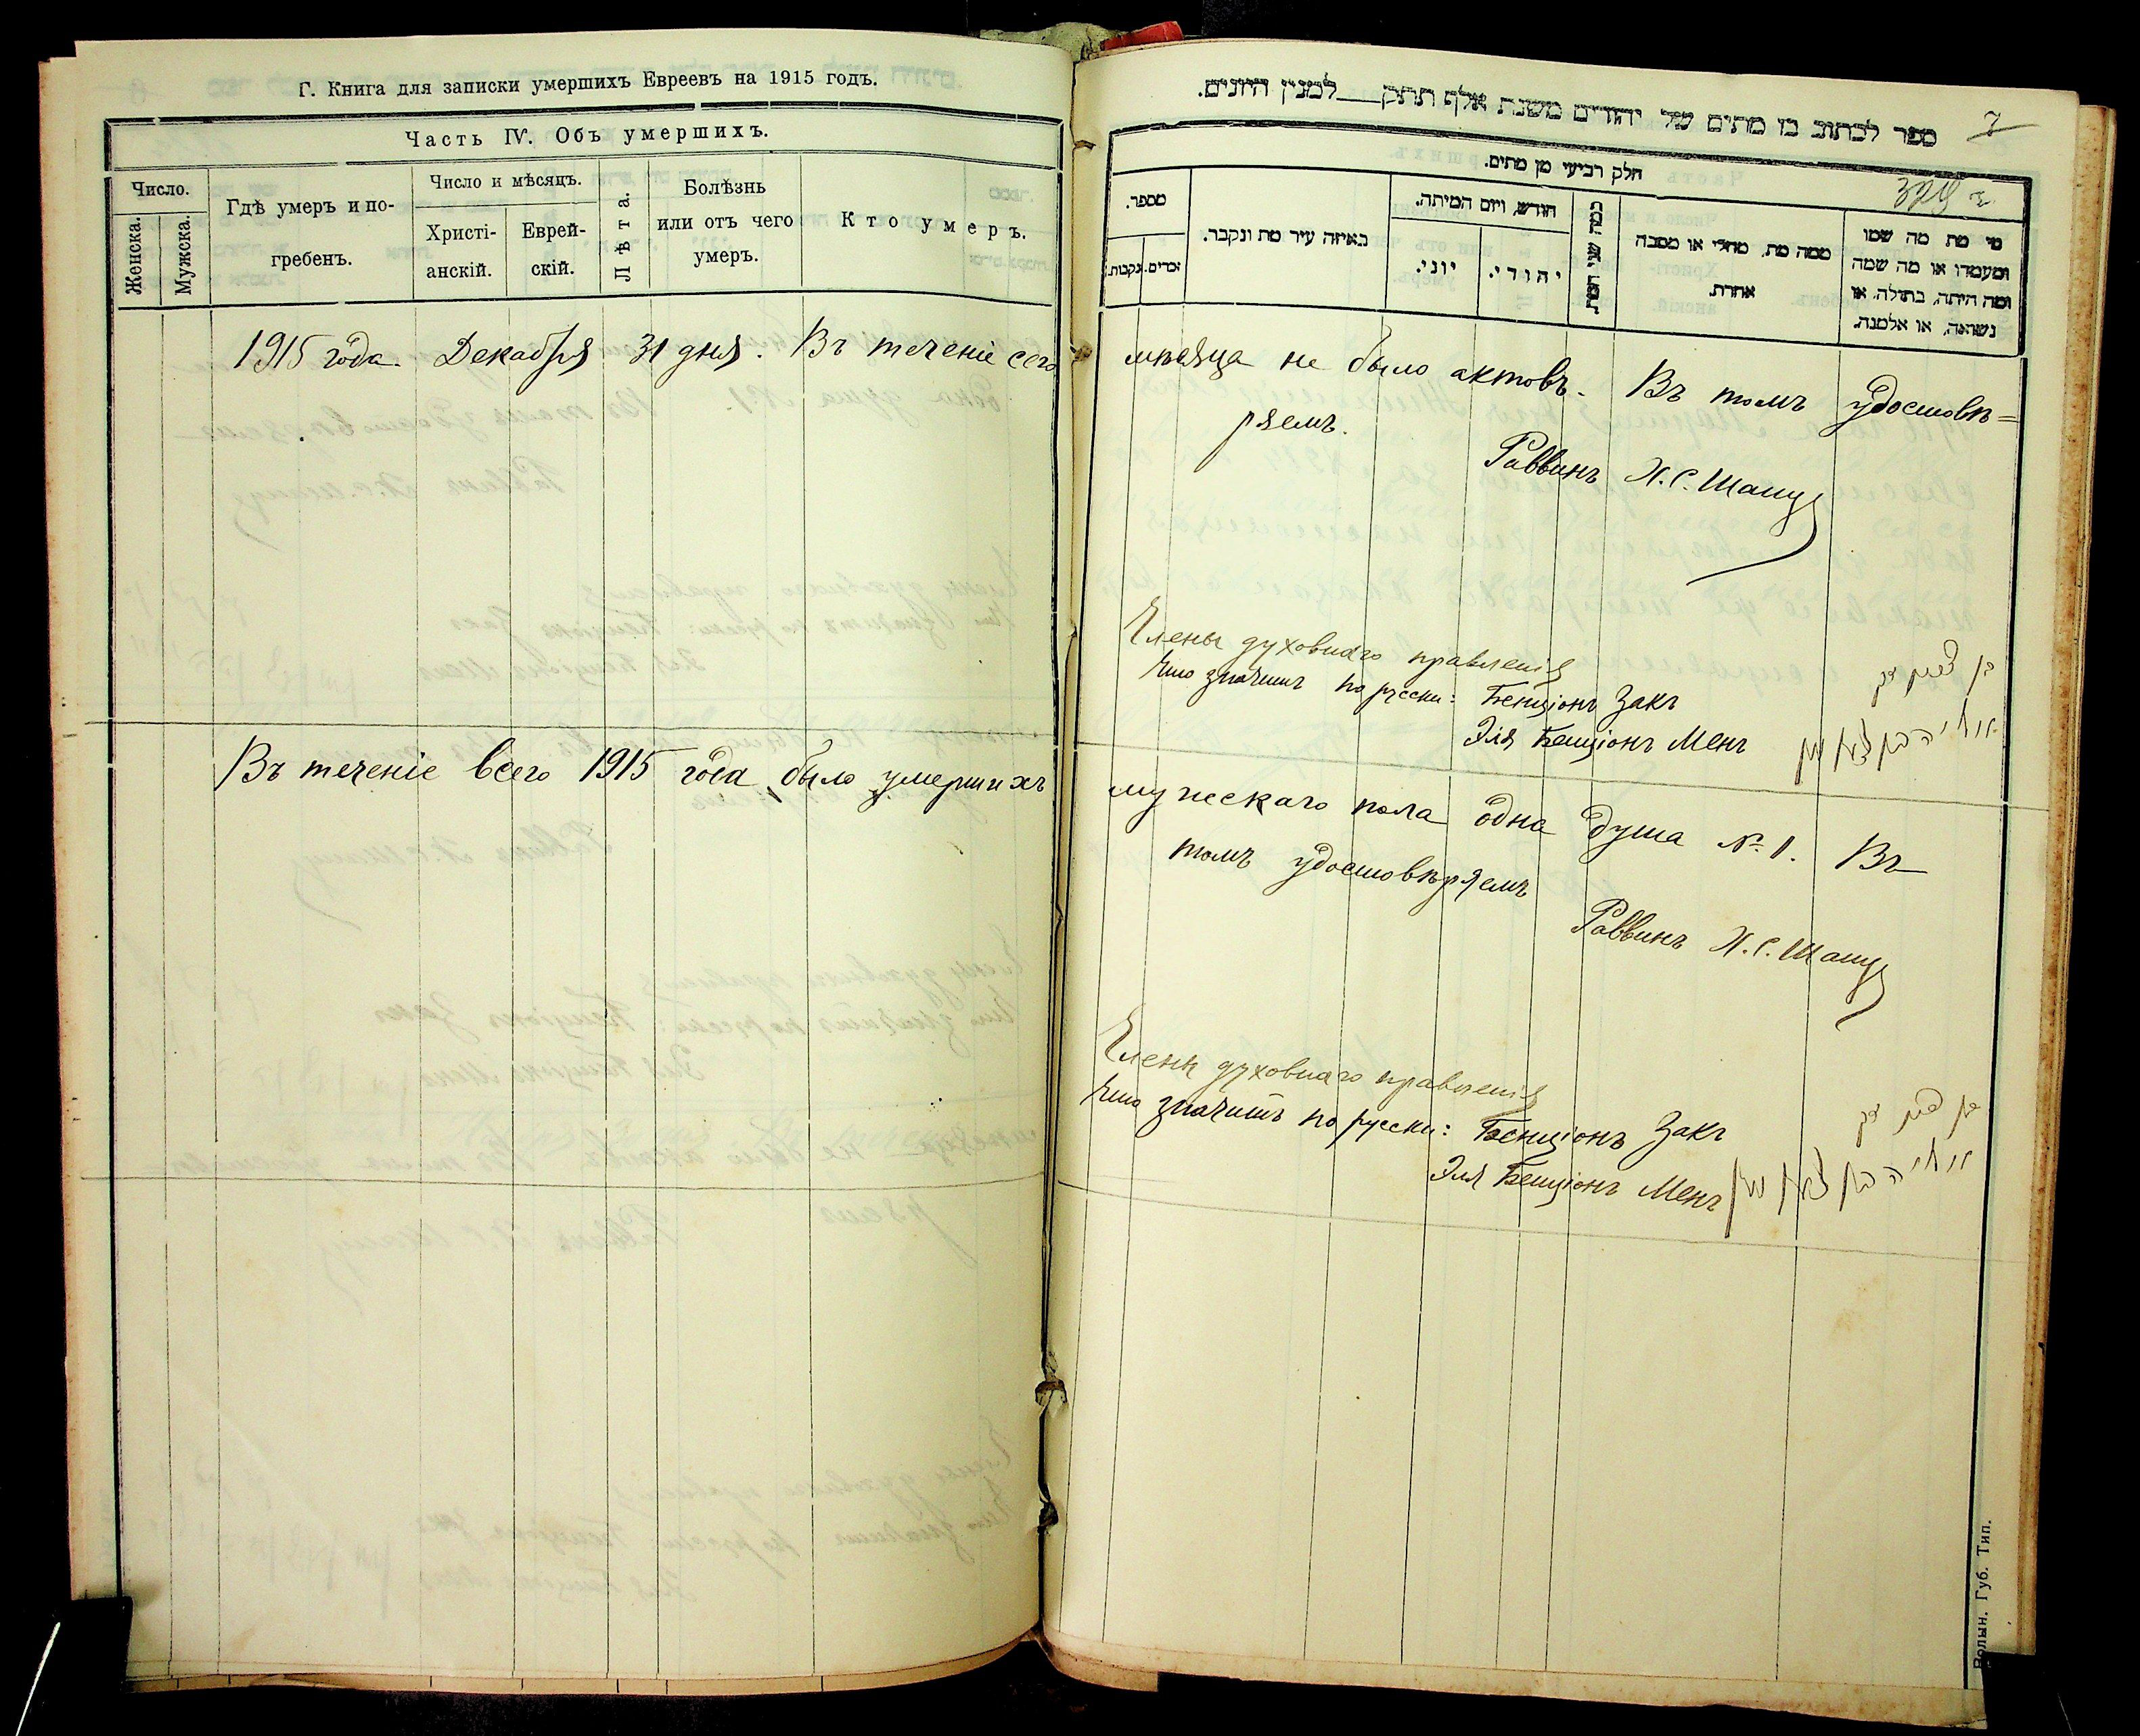 Г. Книга для записки умершихъ Евреевъ на 1915 годъ.
Часть IV. Объ умершихъ.
Число.
Женска.
Мужска.
Гдѣ умеръ и по-
гребенъ.
Число и мѣсяцъ.
Христі-
анскій.
Еврей-
скій.
Лѣта.
Болѣзнь
или отъ чего
умеръ.
Кто умеръ.
1915 года. Декабря 31 дня. Въ теченіе сего
Въ теченіе всего 1915 года было умершихъ
7
ספר לכתוב בו מתים של יהודים משנת אלף תתק__למנין היונים.
חלק רביעי מן מתים.
מספר.
זכרים.
נקבות.
באיזה עיר מת ונקבר.
חודש, ויום המיתה.
יוני.
יהודי.
ממה מת, מחלי או מסבה
אחרת.
מי מת מה שמו
ומעמדו או מה שמה
ומה היתה, בתולה, או
נשואה, או אלמנה.
мѣсяца не было актовъ. Въ томъ удостовѣ=
ряемъ.
Раввинъ Х.С. Шапу
Члены духовнаго правленія
Что значитъ по русски: Бенціонъ Закъ
Эля Бенціонъ Менъ
мужескаго пола одна душа № 1. Въ
томъ удостовѣряемъ
Раввинъ Х.С. Шапу
Члены духовнаго правленія
Что значитъ по русски: Бенціонъ Закъ
Эля Бенціонъ Менъ
Волын. Губ. Тип.